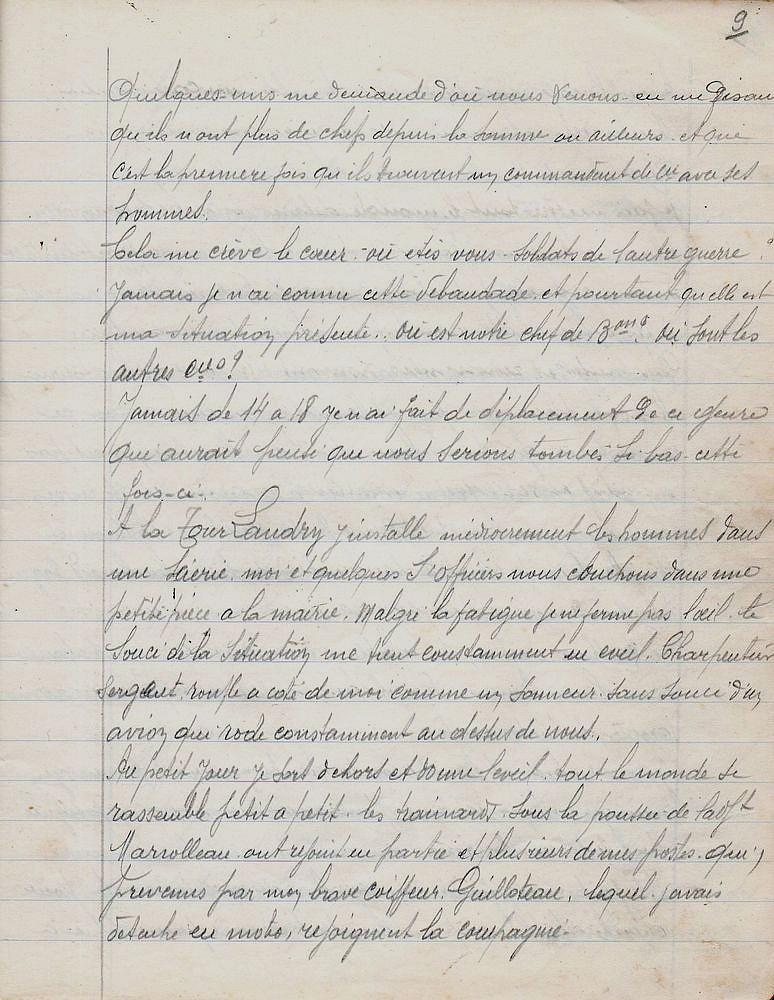 9
Quelques-uns me demande d'où nous venons - en me disant
qu'ils n'ont plus de chefs depuis la Somme ou ailleurs. et que
c'est la premiere fois qu'ils trouvent un commandant de Cie avec ses
hommes.
Cela me crève le coeur - où etes vous - soldats de l'autre guerre ?
Jamais je n'ai connu cette débandade. et pourtant qu'elle est
ma situation présente.. où est notre chef de Bon ? où sont les
autres Cies ?
Jamais de 14 a 18 je n'ai fait de déplacement de ce genre
qui aurait pensé que nous serions tombés si bas - cette
fois-ci.
A la Tour Landry j'installe médiocrement les hommes dans
une . moi et quelques S/officiers nous couchons dans une
petite pièce a la mairie. Malgré la fatigue je ne ferme pas l'oeil. le
souci de la situation me tient constamment en eveil. Charpentier
sergent. ronfle a coté de moi comme un sonneur. sans souci d'un
avion qui rode constamment au dessus de nous..
Au petit jour je sort dehors et donne l'eveil. tout le monde se
rassemble petit a petit. les . sous la poussée de l'adjt
Marolleau. ont rejoint en partie et plusieurs de mes postes. qui,
prevenus par mon brave coiffeur. Guilloteau. lequel. j'avais
détaché en moto, rejoignent la compagnie.